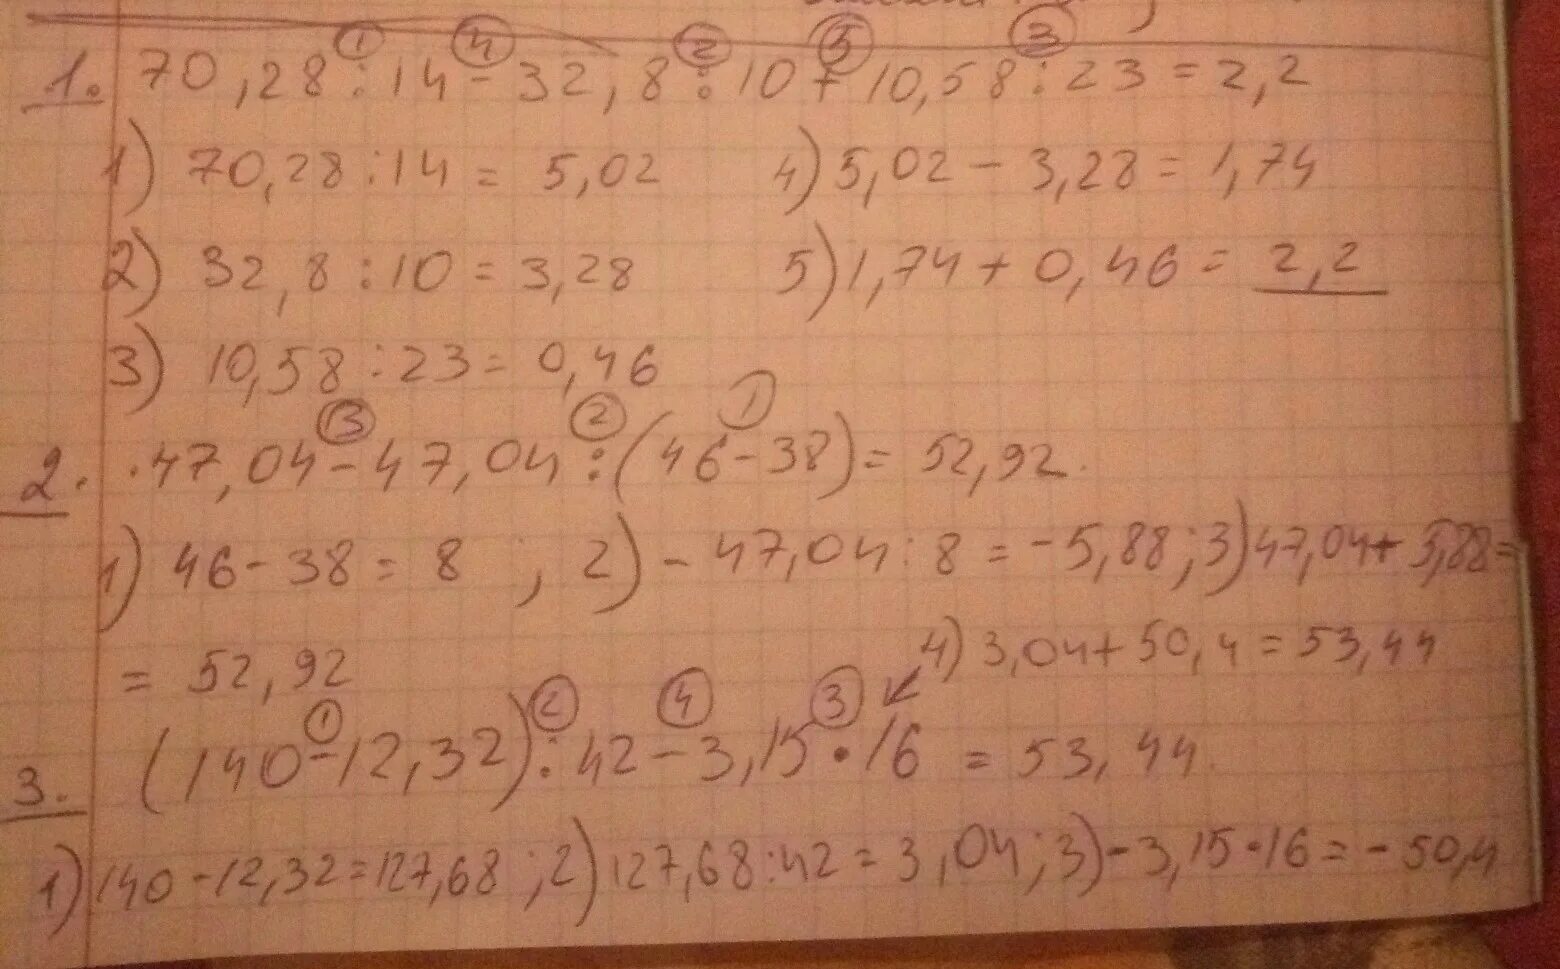 1. 70,28 : 14 - 32,8 : 10 + 10,58 : 23 = 2,2
1) 70,28 : 14 = 5,02 4) 5,02 - 3,28 = 1,74
2) 32,8 : 10 = 3,28 5) 1,74 + 0,46 = 2,2
3) 10,58 : 23 = 0,46
2. 47,04 - 47,04 : (46 - 38) = 52,92.
1) 46 - 38 = 8 ; 2) - 47,04 : 8 = -5,88 ; 3) 47,04 + 5,88 =
= 52,92
4) 3,04 + 50,4 = 53,44
3. (140 - 12,32) : 42 - 3,15 • 16 = 53,44.
1) 140 - 12,32 = 127,68 ; 2) 127,68 : 42 = 3,04 ; 3) - 3,15 • 16 = - 50,4